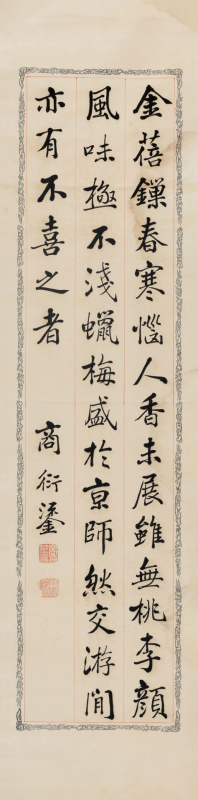 金蓓鏁春寒惱人香未展雖無桃李顔
風味極不淺蠟梅盛於京師然交游間
亦有不喜之者
商衍鎏